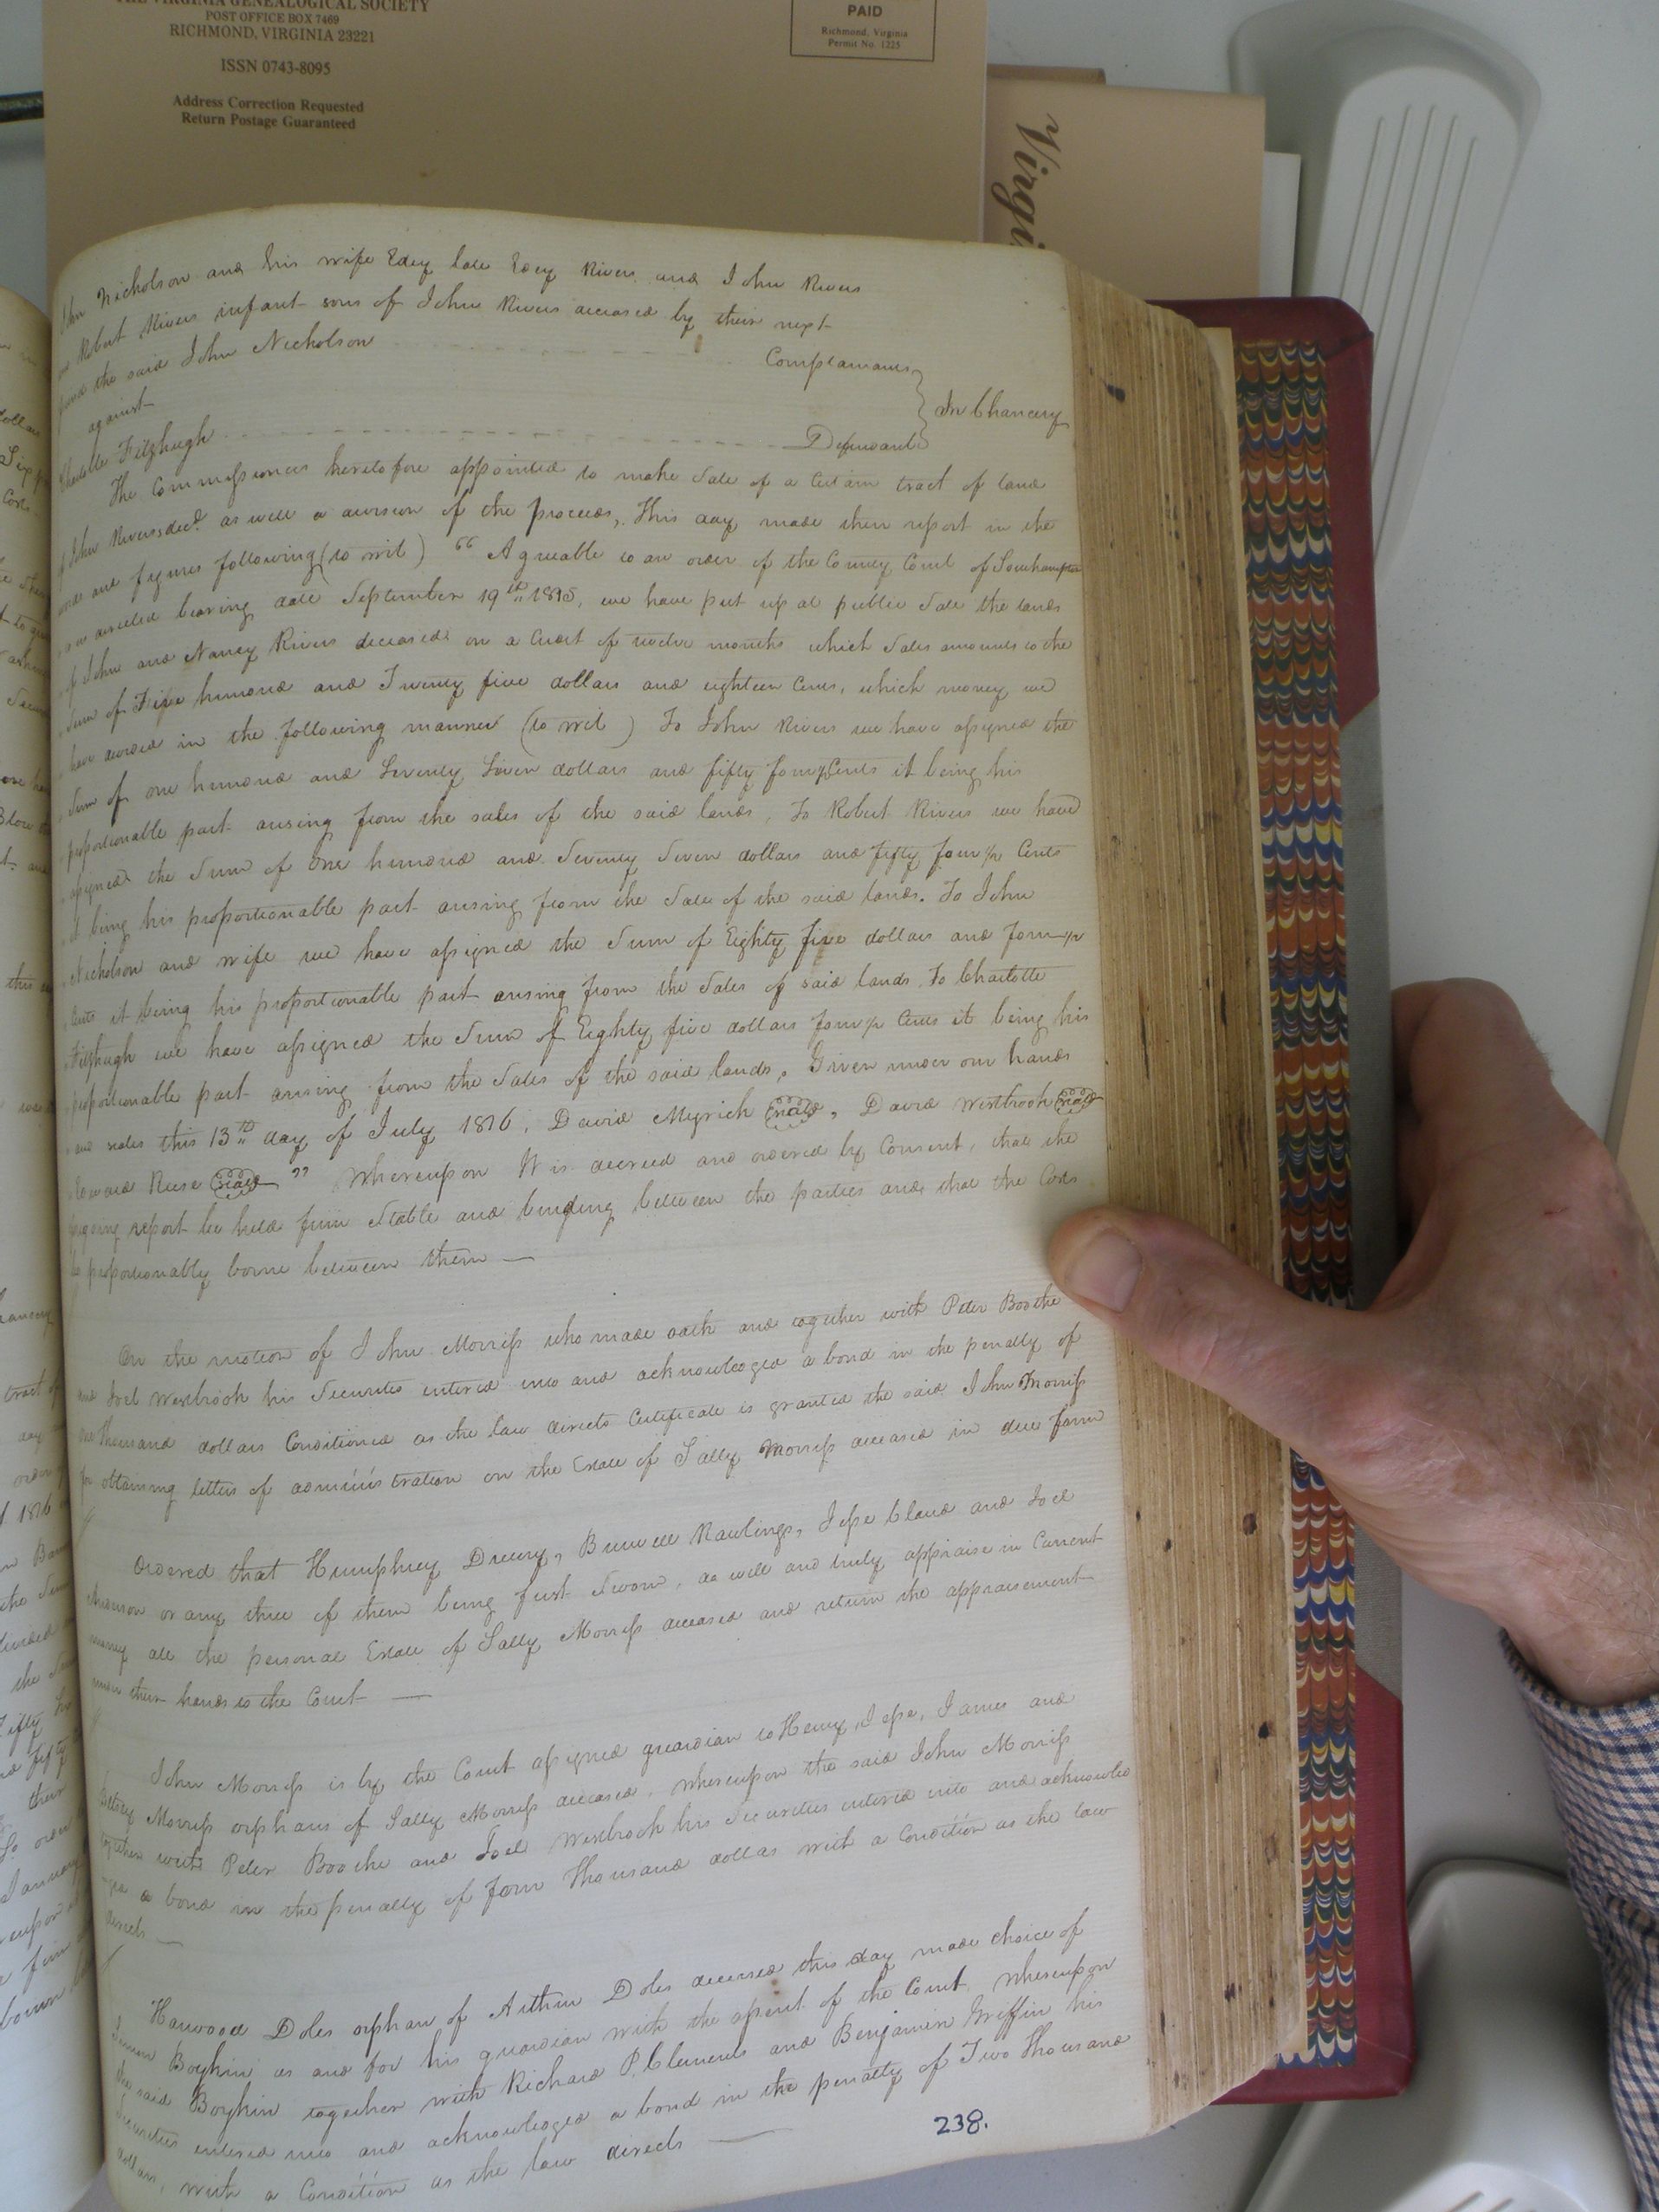 THE VIRGINIA GENEALOGICAL SOCIETY
POST OFFICE BOX 7469
RICHMOND, VIRGINIA 23221
ISSN 0743-8095
Address Correction Requested
Return Postage Guaranteed
PAID
Richmond, Virginia
Permit No. 1225
Virgi
John Nicholson and his wife Edey late Edey Rivers and John Rivers
and Robert Rivers infant sons of John Rivers deceased by their next
friend the said John Nicholson
Complainants
against
In Chancery
Charlotte Fitzhugh
Defendant
The Commissioners heretofore appointed to make Sale of a Certain tract of land
of John Rivers decd. as well a division of the proceeds, This day made their report in the
words and figures following (to wit) "Agreable to an order of the County Court of Southampton
directed bearing date September 19th 1815, we have put up at public Sale the lands
of John and Nancy Rivers deceased on a Credit of twelve months which Sales amounts to the
Sum of Five hundred and Twenty five dollars and eighteen Cents, which money we
have divided in the following manner (to wit) To John Rivers we have assigned the
Sum of one hundred and Seventy Seven dollars and fifty four ½ Cents it being his
proportionable part arising from the sales of the said lands, To Robert Rivers we have
assigned the Sum of One hundred and Seventy Seven dollars and fifty four ½ Cents
it being his proportionable part arising from the Sale of the said lands. To John
Nicholson and wife we have assigned the Sum of Eighty five dollars and four ½
Cents it being his proportionable part arising from the Sales of said lands To Charlotte
Fitzhugh we have assigned the Sum of Eighty five dollars four ½ Cents it being his
proportionable part arising from the Sales of the said lands, Given under our hands
and seales this 13th day of July 1816, David Myrick seal, David Westbrook seal
Edward Reese seal" Whereupon It is decreed and ordered by Consent, that the
foregoing report be held firm Stable and binding between the parties and that the Costs
be proportionably borne between them —
On the motion of John Morriss who made oath and together with Peter Boothe
and Joel Westbrook his Securities entered into and acknowledged a bond in the penalty of
one thousand dollars Conditioned as the law directs Certificate is granted the said John Morriss
for obtaining letters of administration on the Estate of Sally Morriss deceased in due form
Ordered that Humphrey Drewry, Burwell Rawlings, Jesse Claud and Joel
or any three of them being first Sworn, do well and truly appraise in Current
money all the personal Estate of Sally Morriss deceased and return the appraisement
under their hands to the Court —
John Morriss is by the Court assigned guardian to Henry, Jesse, James and
Morriss orphans of Sally Morriss deceased, Whereupon the said John Morriss
together with Peter Boothe and Joel Westbrook his Securities entered into and acknowled
-ged a bond in the penalty of four Thousand dollars with a Condition as the law
directs —
Harwood Doles orphan of Arthur Doles deceased this day made choice of
Boykin as and for his guardian with the assent of the Court, Whereupon
the said Boykin together with Richard P. Clements and Benjamin Griffin his
Securities entered into and acknowledged a bond in the penalty of Two Thousand
dollars, with a Condition as the law directs —
238.